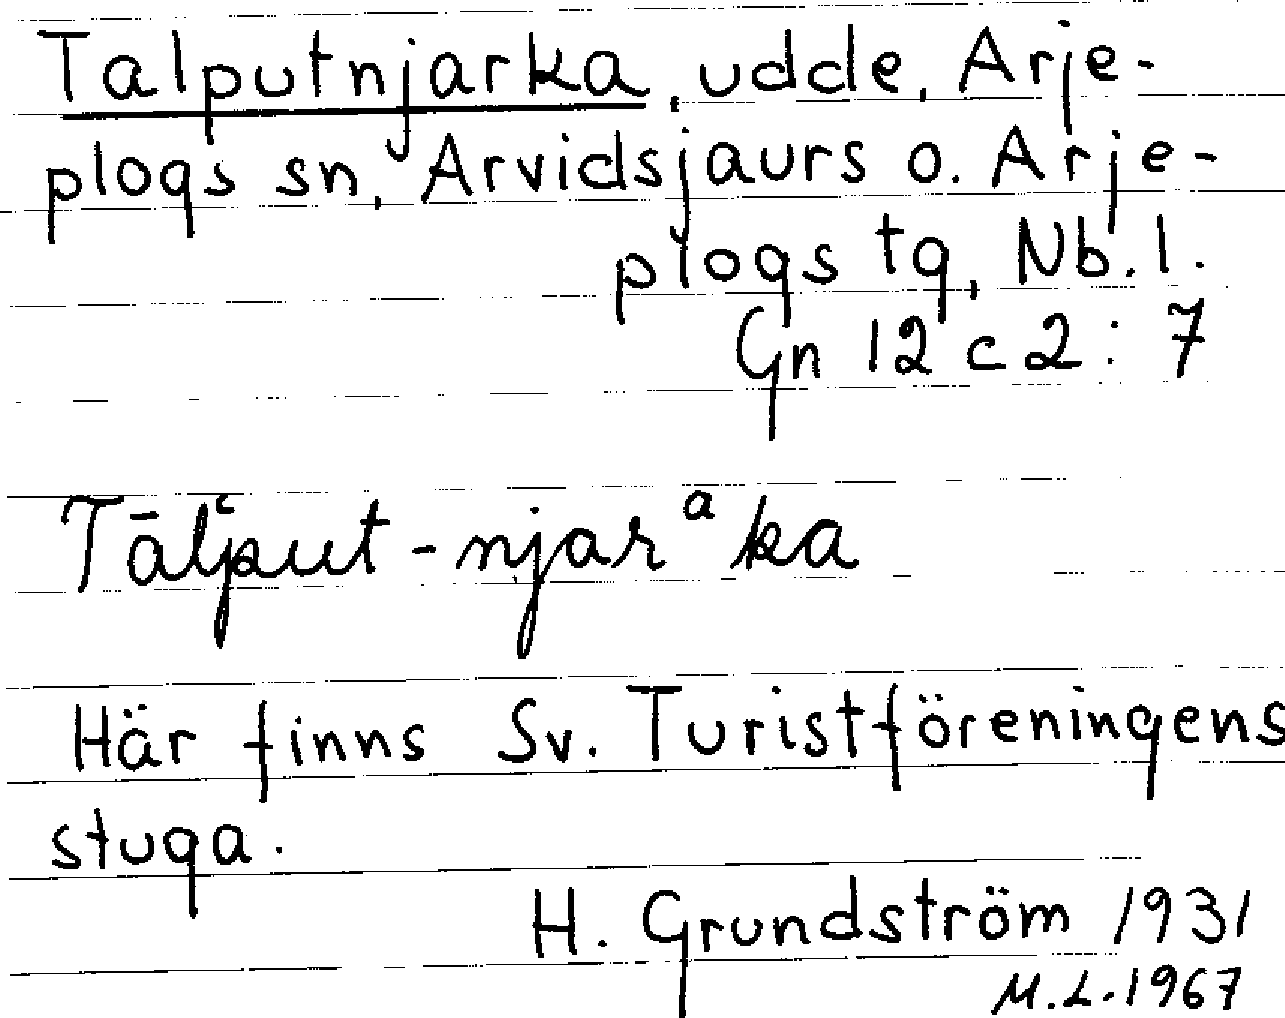 Talputnjarka, udde, Arje-
plogs sn, Arvidsjaurs o. Arje-
plogs tg, Nb. l.
Gn 12 c 2 : 7
Tālʿput-njarᵃka
Här finns Sv. Turistföreningens
stuga.
H. Grundström 1931
M.L. 1967